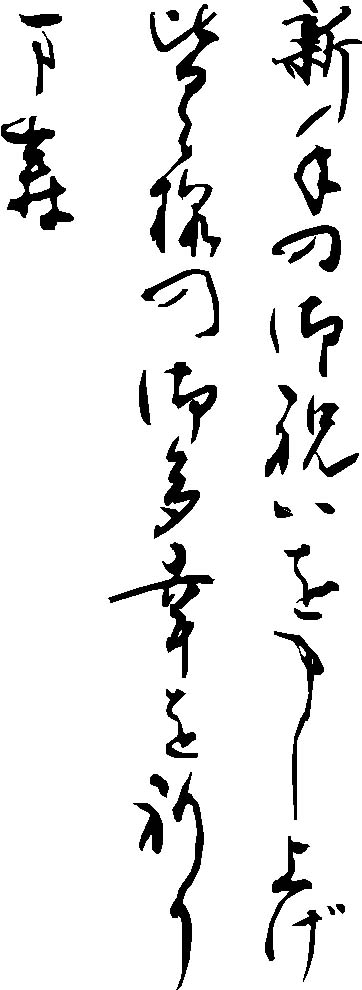 新年の御祝いを申し上げ
皆々様の御多幸を祈り
ます